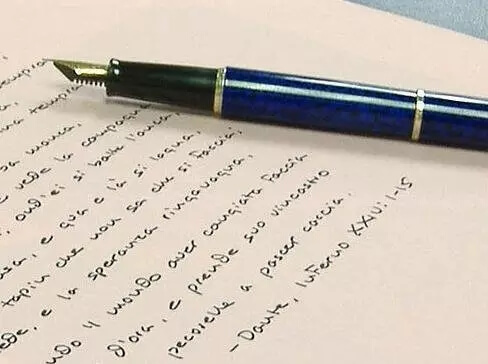 tempra
una tempra
sa manca,
e vede la campagna
ond' ei si batte l'anca,
asa, e qua e là si lagna,
tapin che non sa che si faccia;
ede, e la speranza ringavagna,
ndo 'l mondo aver cangiata faccia
d'ora, e prende suo vincastro
pecorelle a pascer caccia.
- Dante, Inferno XXIV: 1-15